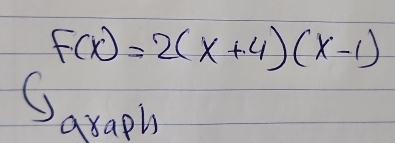 F(x) = 2(x+4)(x-1)
graph